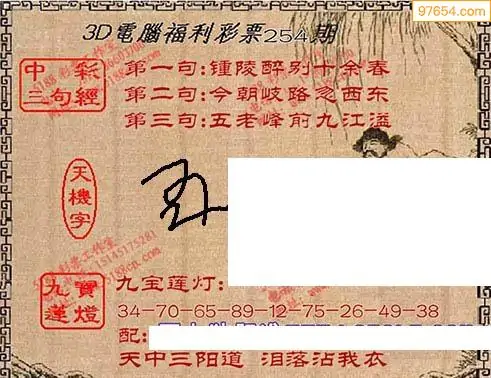 97654.com
3D電腦福利彩票254期
中彩
三句經
第一句:锺陵醉别十余春
第二句:今朝岐路忽西东
第三句:五老峰前九江溢
天機字
九寶
蓮燈
九宝莲灯:
34-70-65-89-12-75-26-49-38
配:
天中三阳道 泪落沾我衣